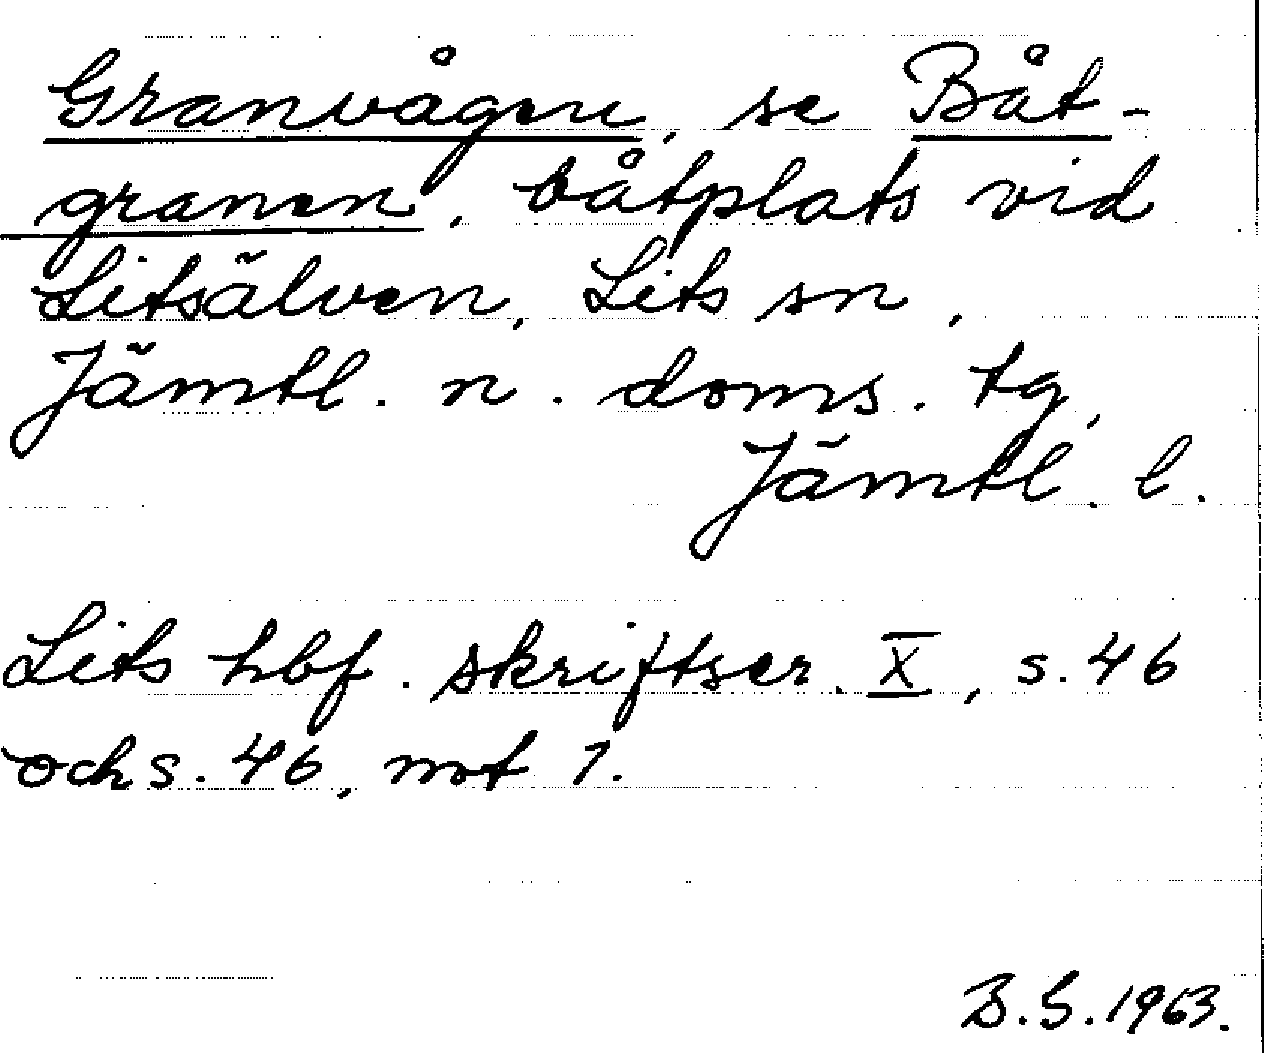 Granvågen, se Båt-
granen, båtplats vid
Litsälven, Lits sn,
Jämtl. n. doms. tg,
Jämtl. l.
Lits hbf. skriftser. X, s. 46
och s. 46, not 1.
B.S. 1963.